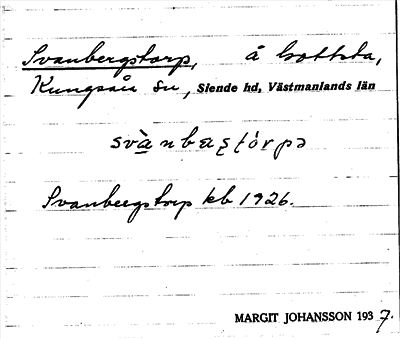 Svanbergstorp, å
Kungsåra sn, Siende hd, Västmanlands län
Svanbergstorp kb 1926.
MARGIT JOHANSSON 1937.